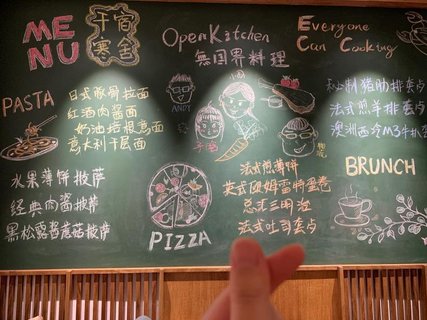 MENU
干宿
寒舍
Open Kitchen
無国界料理
Everyone
Can Cooking
PASTA
日式豚骨拉面
红酒肉酱面
奶油培根意面
意大利千层面
ANDY
小
秘制猪肋排套点
法式煎羊排套点
澳洲西冷M3牛扒套
水果薄饼披萨
经典肉酱披萨
黑松露酱蘑菇披萨
PIZZA
法式煎薄饼
英式欧姆雷特蛋卷
总汇三明治
法式吐司套点
BRUNCH